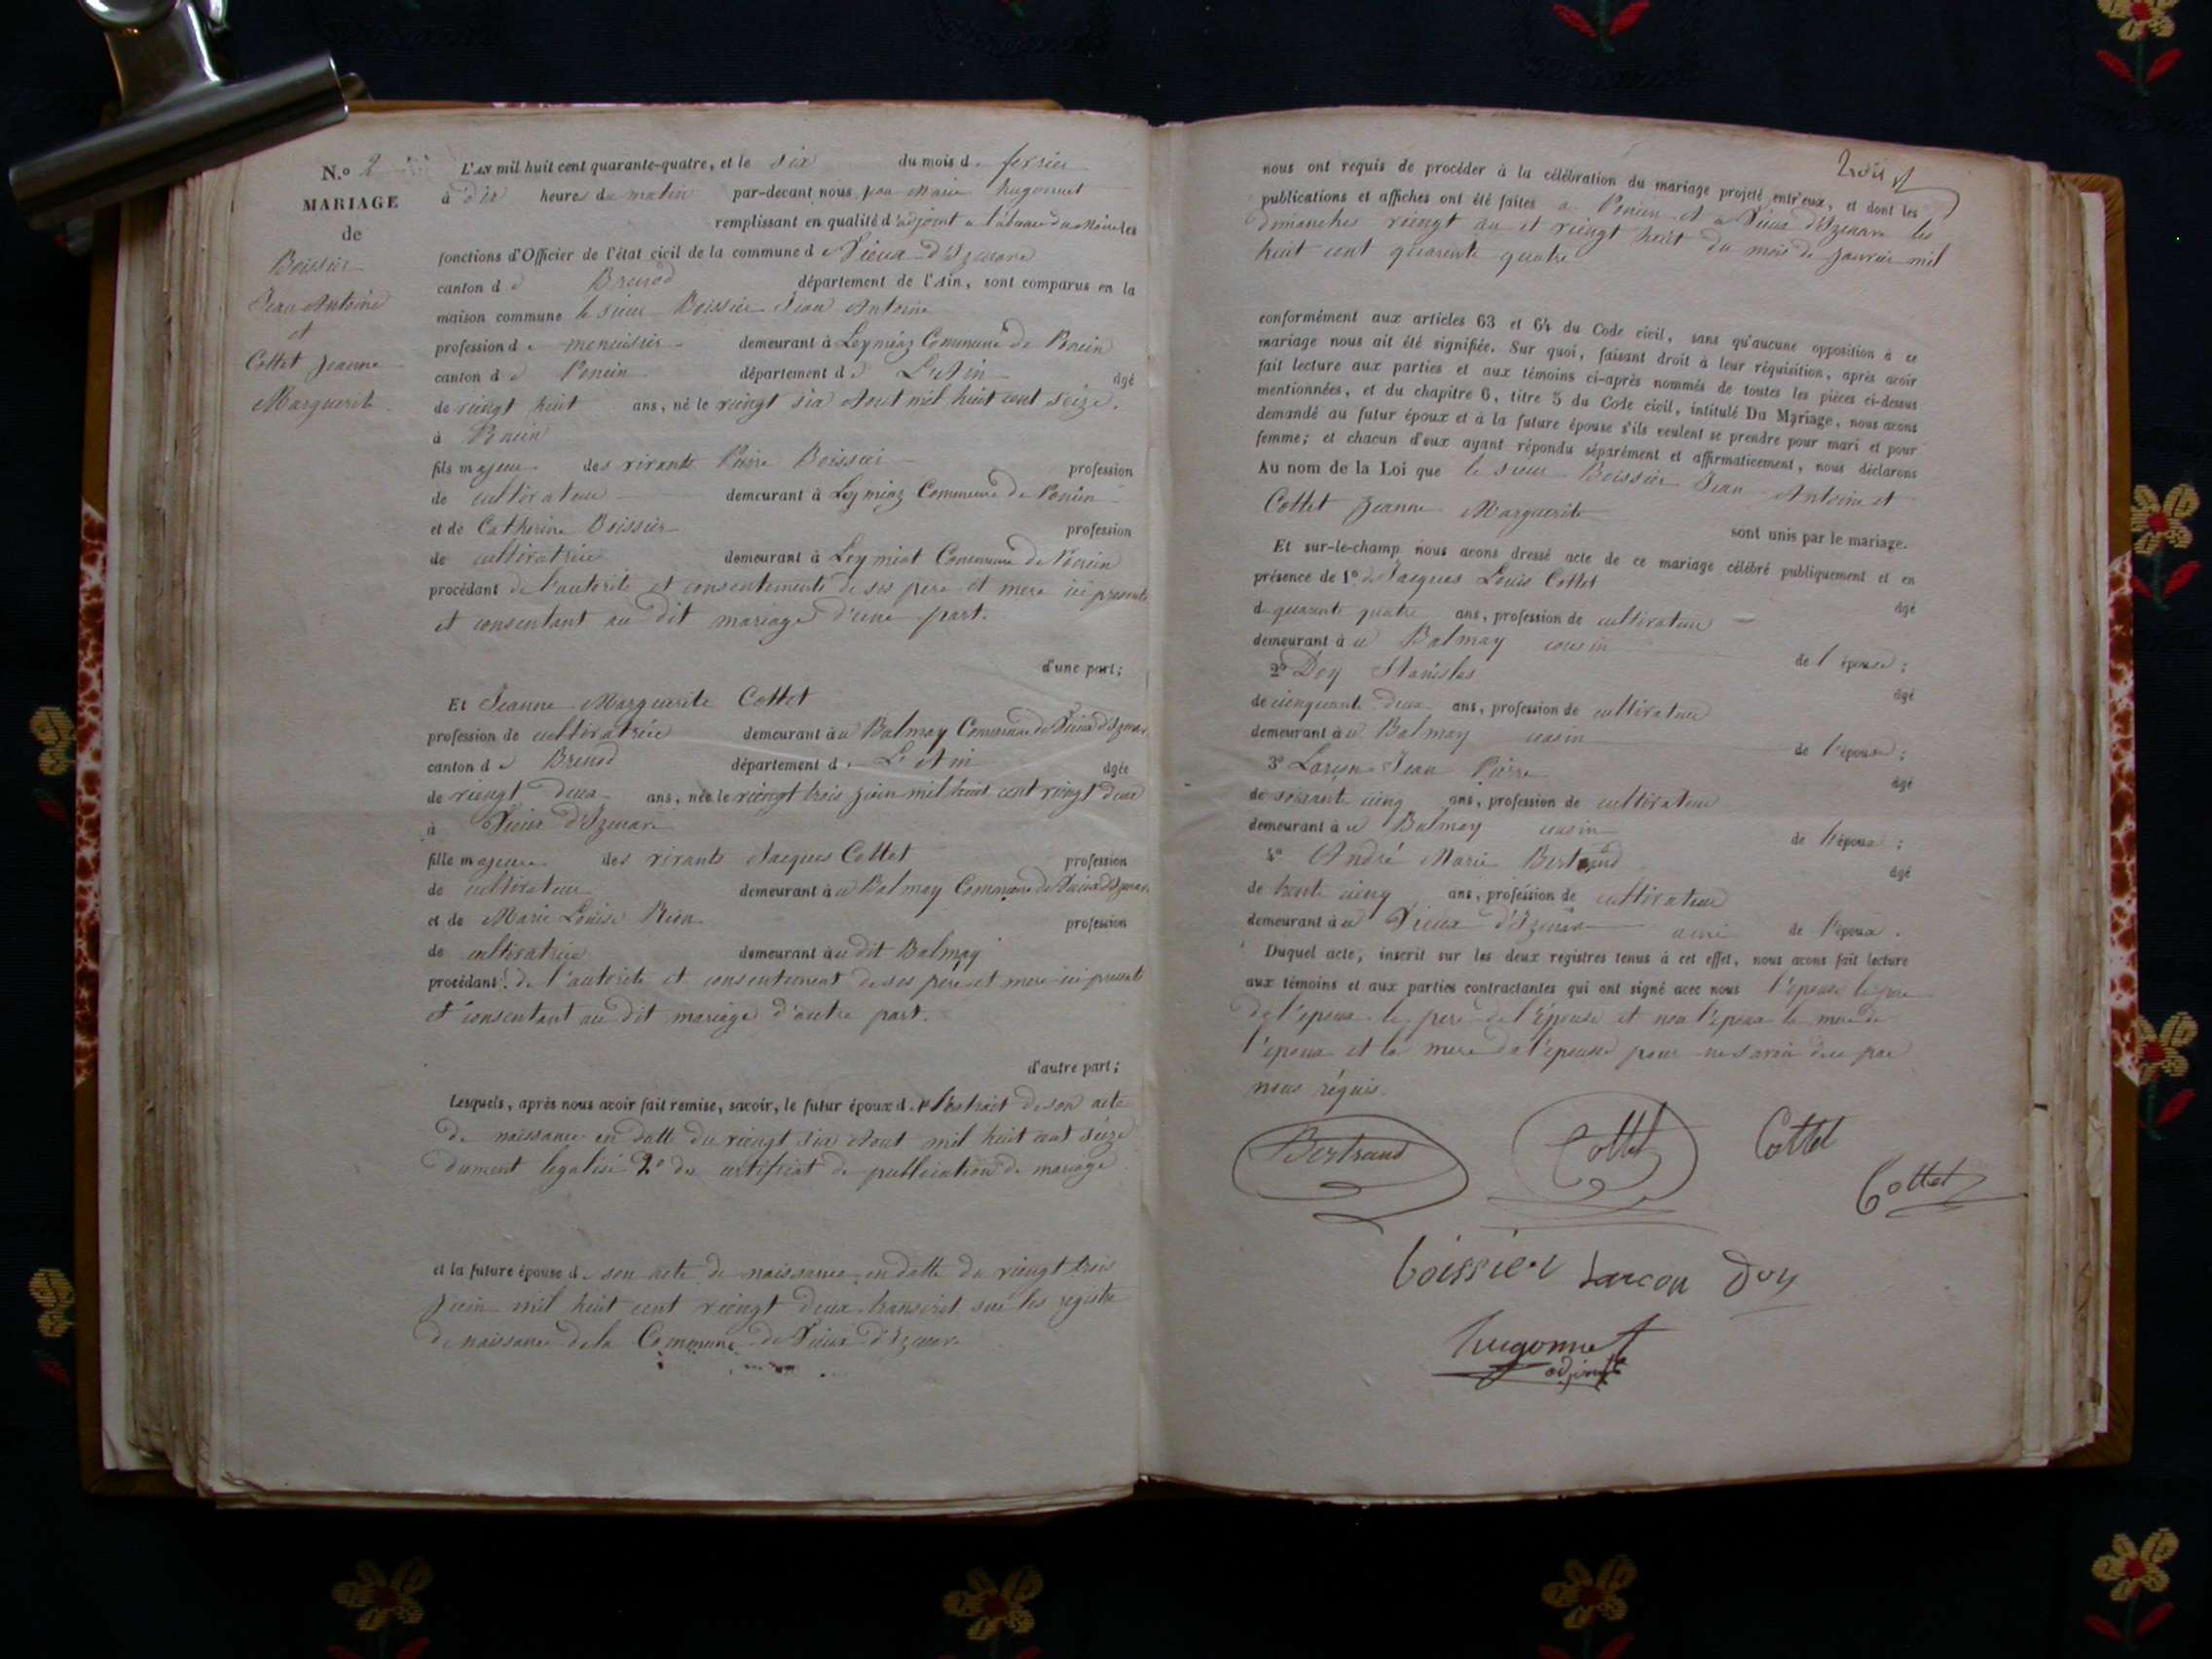 N.o 2
MARIAGE
de
Boissier
Jean Antoine
et
Cottet Jeanne
Marguerite
L'AN mil huit cent quarante-quatre, et le six du mois de fevrier
à dix heures du matin par-devant nous jean Marie hugonnet
remplissant en qualité d'adjoint a l'absence du Maire les
fonctions d'Officier de l'état civil de la commune de Vieux d'Izenave
canton de Brenod département de l'Ain, sont comparus en la
maison commune le sieur Boissier Jean Antoine
profession de menuisier demeurant à Leymiaz Commune de Poncin
canton de Poncin département de L'Ain âgé
de vingt huit ans, né le vingt six Aout mil huit cent seize.
à Poncin
fils majeur des vivants Pierre Boissier profession
de cultivateur demeurant à Leymiaz Commune de Poncin
et de Catherine Boissier profession
de cultivatrice demeurant à Leymiat Commune de Poncin
procédant de l'autorité et consentements de ses pere et mere ici presents
et consentant au dit mariage d'une part.
d'une part;
Et Jeanne Marguerite Cottet
profession de cultivatrice demeurant àu Balmay Commune de Vieux d'Izenave
canton de Brenod département de L'Ain âgée
de vingt deux ans, née le vingt trois juin mil huit cent vingt deux
à Vieux d'Izenave
fille majeure des vivants Jacques Cottet profession
de cultivateur demeurant àu Balmay Commune de Vieux d'Izenave
et de Marie Louise profession
de cultivatrice demeurant àu dit Balmay
procédant de l'autorité et consentement de ses père et mere ici presents
et consentant au dit mariage d'autre part.
d'autre part;
Lesquels, après nous avoir fait remise, savoir, le futur époux de l'extrait de son acte
de naissance en datte du vingt six Aout mil huit cent seize
dument legalisé 2o du certificat de publication de mariage
et la future épouse de son acte de naissance en datte du vingt trois
juin mil huit cent vingt deux transcrit sur les registre
de naissance de la Commune de Vieux d'Izenave
nous ont requis de procéder à la célébration du mariage projeté entr'eux, et dont les
publications et affiches ont été faites a Poncin et a Vieux d'Izenave les
dimanches vingt un et vingt huit du mois de janvier mil
huit cent quarante quatre
conformément aux articles 63 et 64 du Code civil, sans qu'aucune opposition à ce
mariage nous ait été signifiée. Sur quoi, faisant droit à leur réquisition, après avoir
fait lecture aux parties et aux témoins ci-après nommés de toutes les pièces ci-dessus
mentionnées, et du chapitre 6, titre 5 du Code civil, intitulé Du Mariage, nous avons
demandé au futur époux et à la future épouse s'ils veulent se prendre pour mari et pour
femme; et chacun d'eux ayant répondu séparément et affirmativement, nous déclarons
Au nom de la Loi que le sieur Boissier Jean Antoine et
Cottet Jeanne Marguerite
sont unis par le mariage.
Et sur-le-champ nous avons dressé acte de ce mariage célébré publiquement et en
présence de 1o de Jacques Louis Cottet âgé
de quarante quatre ans, profession de cultivateur
demeurant à u Balmay cousin de l'épouse;
2o Doy Stanislas âgé
de cinquante deux ans, profession de cultivateur
demeurant à u Balmay cousin de l'épouse;
3o Larçon Jean Pierre âgé
de soixante cinq ans, profession de cultivateur
demeurant à u Balmay cousin de l'époux;
4o André Marie Bertrand âgé
de trente cinq ans, profession de cultivateur
demeurant à u Vieux d'Izenave ami de l'époux.
Duquel acte, inscrit sur les deux registres tenus à cet effet, nous avons fait lecture
aux témoins et aux parties contractantes qui ont signé avec nous l'épouse le pere
de l'epoux le pere de l'épouse et non l'epoux la mere de
l'epoux et la mere de l'epouse pour ne savoir de ce par
nous réquis.
Bertrand Cottet Cottet
Cottet
boissier Larcon doy
hugonnet
adjoint